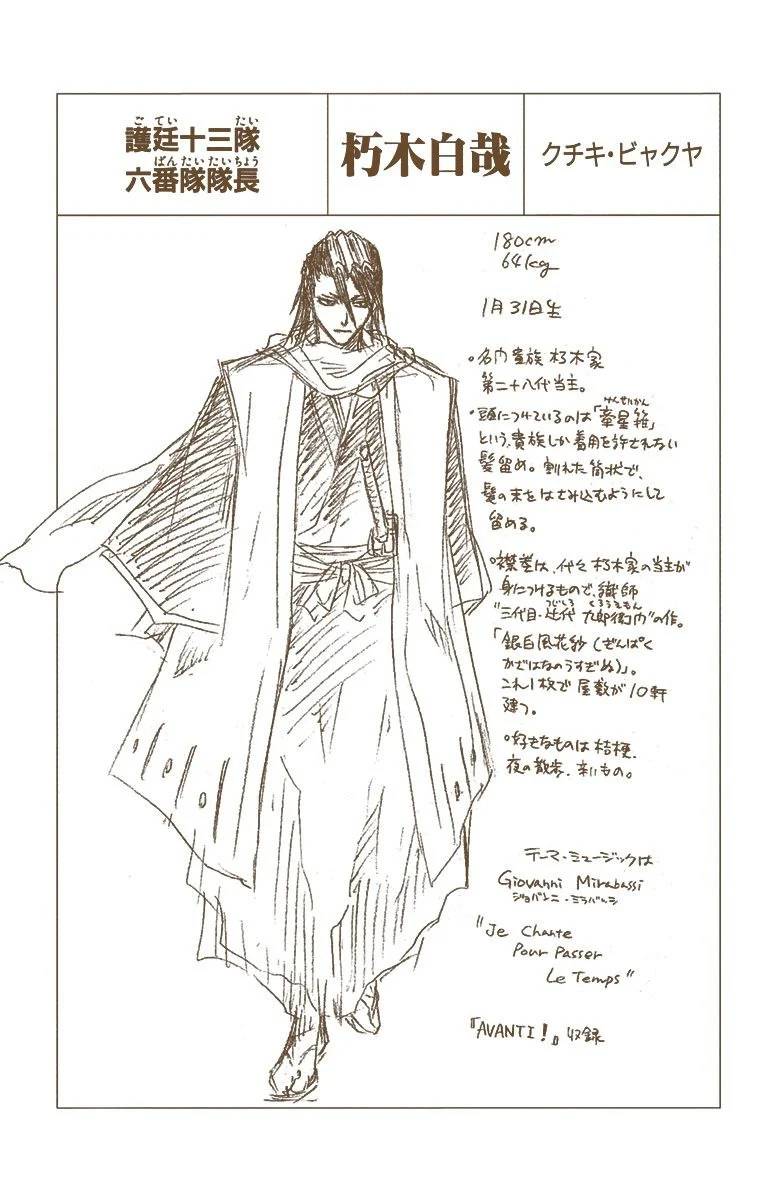 護廷十三隊
六番隊隊長
ごてい たい
ばんたいたいちょう
朽木白哉
クチキ・ビャクヤ
180cm
64kg
1月31日生
・名門貴族 朽木家
第二十八代当主。
・頭につけているのは「牽星箝」
けんせいかん
という、貴族しか着用を許されない
髪留め。割れた筒状で、
髪の束をはさみ込むようにして
留める。
・襟巻は、代々朽木家の当主が
身につけるもので、織師
"三代目・辻代 九郎衛門"の作。
つじしろ くろうえもん
「銀白風花紗(ぎんぱく
かざはなのうすぎぬ)」。
これ1枚で屋敷が10軒
建つ。
・好きなものは桔梗、
夜の散歩、辛いもの。
テーマ・ミュージックは
Giovanni Mirabassi
ジョバンニ・ミラバッシ
"Je Chante
Pour Passer
Le Temps"
『AVANTI!』収録